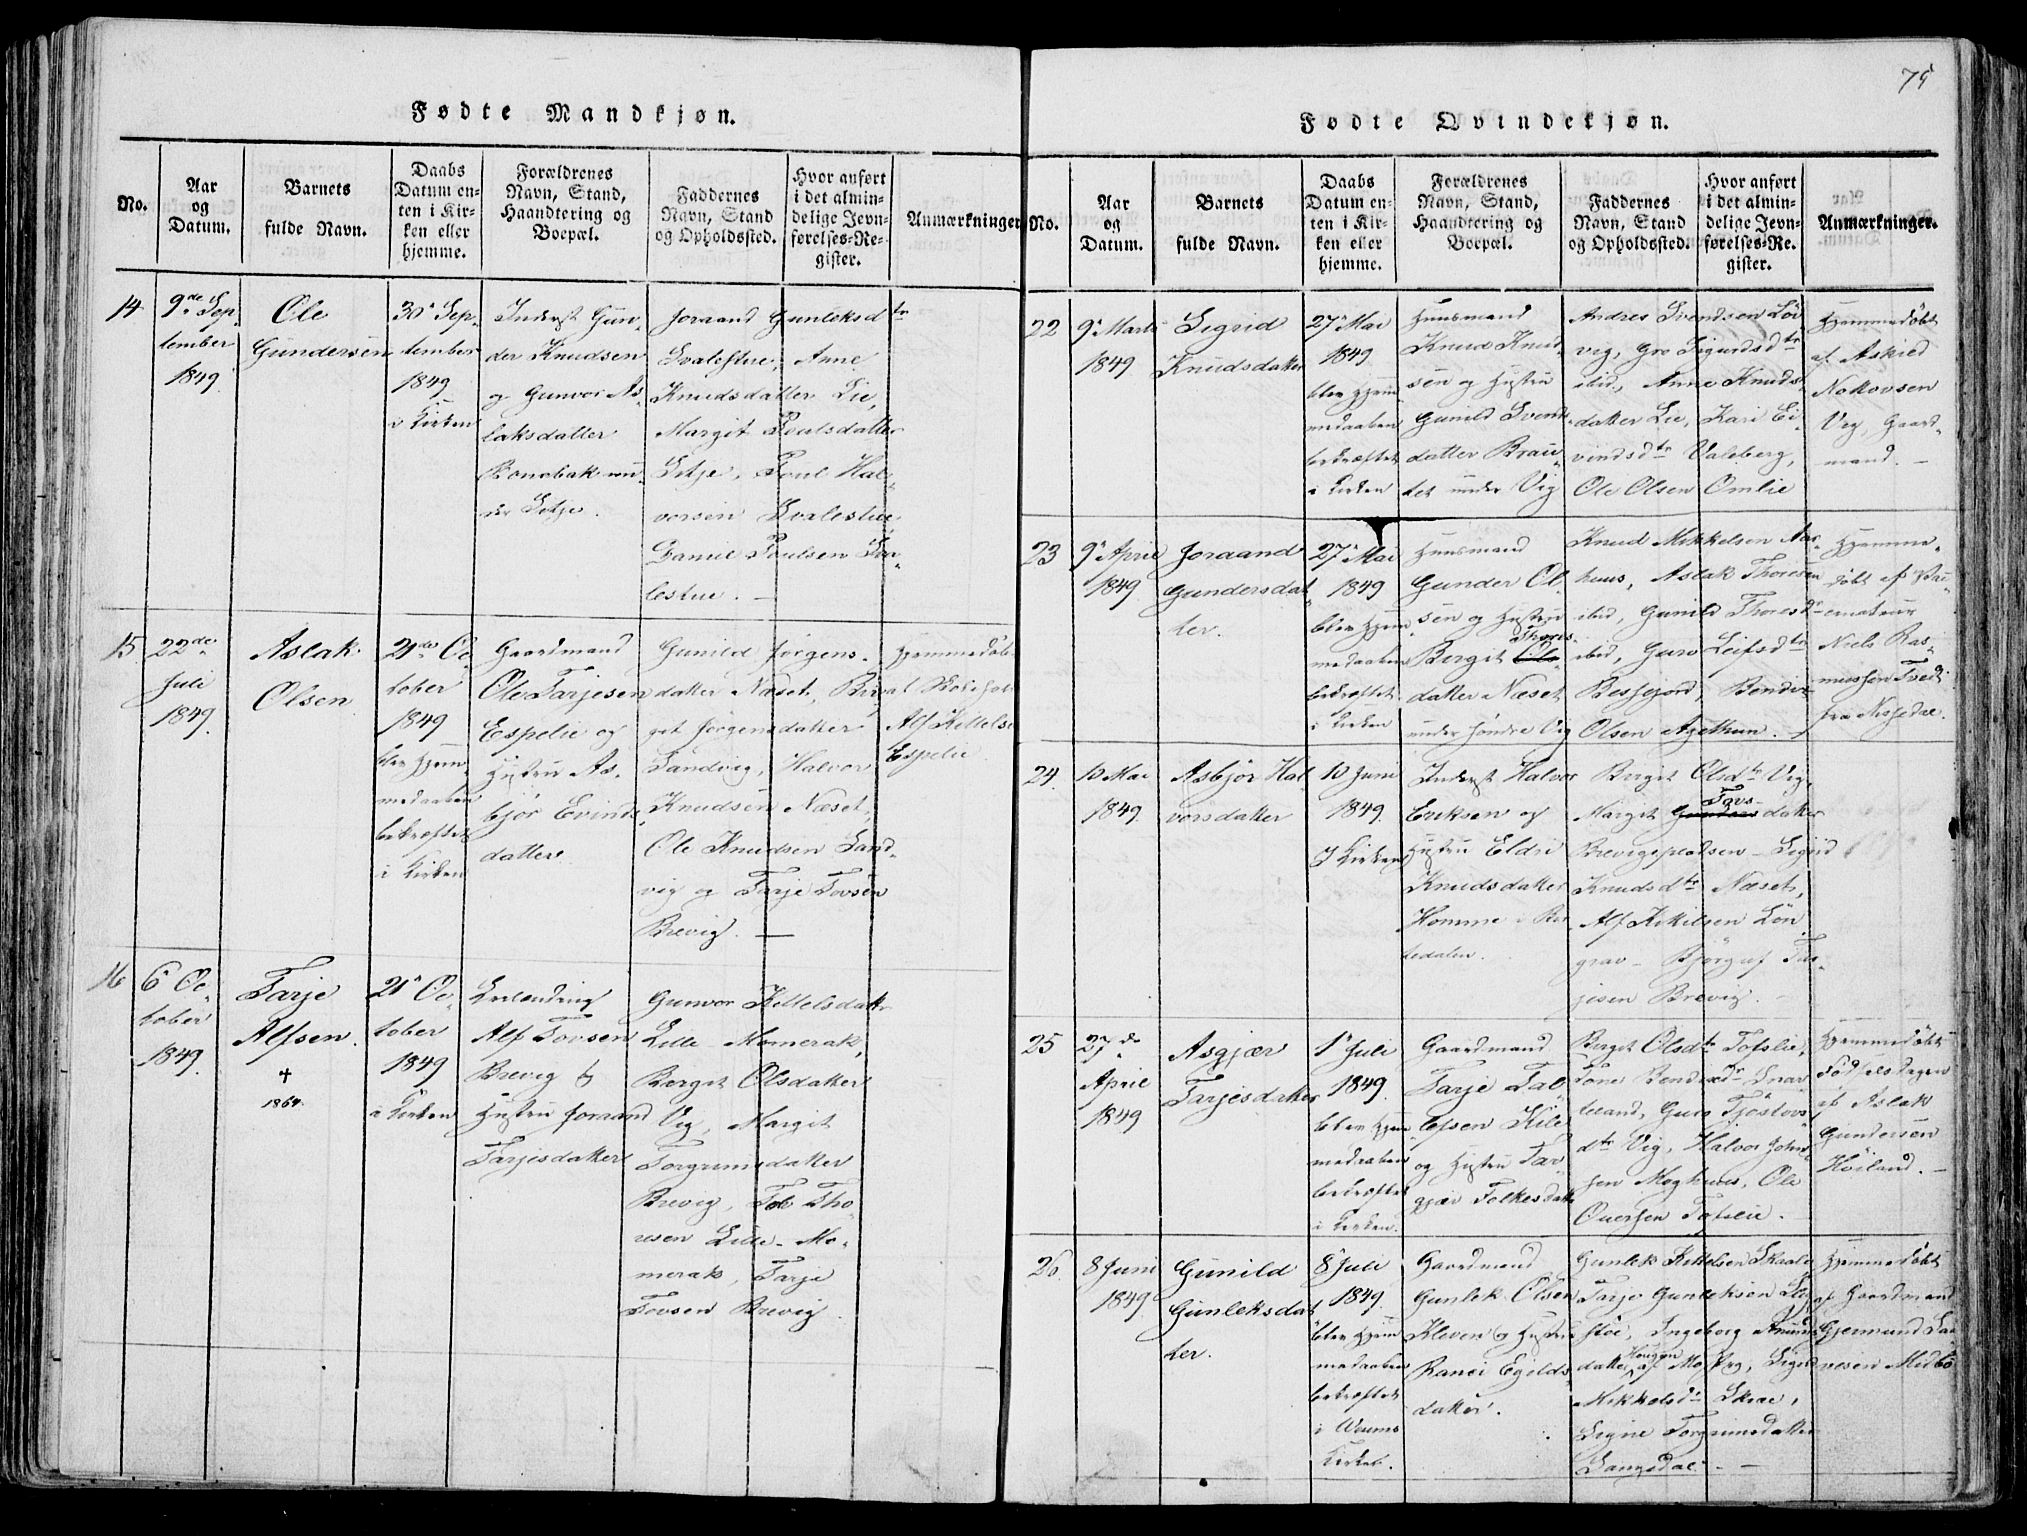 Fødte Mandkjøn.
No.
Aar
og
Datum.
Barnets
fulde Navn.
Daabs
Datum en-
ten i Kir-
ken eller
hjemme.
Forældrenes
Navn, Stand,
Haandtering og
Boepæl.
Faddernes
Navn, Stand
og Opholdssted.
Hvor anført
i det almin-
delige Jevn-
førelses-Re-
gister.
Anmærkninger
14
9de Sep-
tember
1849.
Ole
Gundersen
30 Sep-
tember
1849
i Kirken
Inderst Gun-
der Knudsen
og Gunvor As-
laksdatter
Bonebak un-
der Sitje.
Joraand Gunleksdtr
Svalestue, Anne
Knudsdatter Lie,
Margit Poulsdatter
Sitje, Poul Hal-
vorsen Svalestue
Daniel Poulsen Sva-
lestue. -
15
22de
Juli
1849.
Aslak
Olsen
21de Oc-
tober
1849
blev Hjem-
medaaben
bekræftet
i Kirken
Gaardmand
Ole Tarjesen
Espelie og
Hustru As-
bjør Evinds-
datter
Gunild Jørgens-
datter Næset, Bir-
git Jørgensdatter
Sandvig, Halvor
Knudsen Næset,
Ole Knudsen Sand-
vig og Tarje Tovsen
Brevig. -
Hjemmedøbt
Alf Kittels
Espelie
16
6 Oc-
tober
1849.
Tarje
Alfsen.
†
1864.
21 Oc-
tober
1849
i Kirken
Alf Tovsen
Brevig &
Hustru Joraand
Tarjesdatter
Gunvor Kittelsdatter
Lille Momerak,
Berget Olsdatter
Vig, Margit
Torgrimsdatter
Brevig, Tho-
resen Lille Mo-
merak, Tarje
Tovsen Brevig.
75
Fødte Qvindekjøn.
No.
Aar
og
Datum.
Barnets
fulde Navn.
Daabs
Datum en-
ten i Kir-
ken eller
hjemme.
Forældrenes
Navn, Stand,
Haandtering og
Boepæl.
Faddernes
Navn, Stand
og Opholdssted.
Hvor anført
i det almin-
delige Jevn-
førelses-Re-
gister.
Anmærkninger.
22
9 Marts
1849
Sigrid
Knudsdatter
27 Mai
1849
blev Hjem-
medaaben
bekræftet
i Kirken
Huusmand
Knud Knud-
sen og Hustru
Gunild Svends-
datter Brau-
tet under Vig
Andres Svendsen Løv-
vig, Gro Sigurdsdtr
ibid, Anne Knuds-
datter Lie, Kari Ei-
vindsdtr Valeberg,
Ole Olsen Omlie
Hjemmedøbt
af Askild
Vig, Gaard-
mand. -
23
9 April
1849
Joraand
Gundersdat-
ter.
27 Mai
1849
blev Hjem-
medaaben
bekræftet
i Kirken
Huusmand
Gunder Ol-
sen og Hustru
Bergit Thores-
datter Næset
under Søndre Vig
Knud Mikkelsen Aas-
huus, Aslak Thoresen
ibid, Gunild Thoresdr
ibid, Guro Leifsdtr
Bessejord, Bendix
Olsen
Hjemme-
døbt af
Niels Ras-
mussen Tvedt
fra Nissedal.
24.
10 Mai
1849.
Asbjør Hal-
vorsdatter
10 Juni
1849.
I Kirken
Inderst Halvor
Eriksen og
Hustru Eldri
Knudsdatter
Homme i Bir-
tedalen.
Birgit Olsdtr Vig,
Margit Tovsdatter
Brevigspladsen - Sigrid
Knudsdtr Næset,
Alf Kittilsen Løn-
grav - Bjørguf Tar-
jesen Brevig. -
25
27de
April
1849
Asgjær
Tarjesdatter
1 Juli
1849.
blev Hjem-
medaaben
bekræftet
i Kirken.
Gaardmand
Tarje Tal-
lefsen Kile
og Hustru Tar-
gjær Folkesdatter
Berget Olsdtr Tofslie,
Tone Bendixdr Snar-
teland, Guro Tjøstovs-
dtr Vig, Halvor John-
sen Moghuus, Ole
Tofslie. -
Hjemmedøbt
Fødselsdagen
af Aslak
Gundersen
Høiland. -
26.
8 Juni
1849.
Gunild
Gunleksdat-
ter.
8 Juli
1849.
blev Hjem-
medaaben
bekræftet
i Weums
Kirke.
Gaardmand
Gunlek Olsen
Kleven og Hustru
Ranei Egilds-
datter.
Gunlek Kittelsen Skaali
Tarje Gunleksen
støe, Ingeborg Amunds-
datter Haugen af Mo Prg, Sigrid
Mikkelsdr Skree,
Signe Torgrimsdatter
Langsdal. -
Hjemmedøbt
af Gaardmand
Gjermund Sa-
vesen Midbø